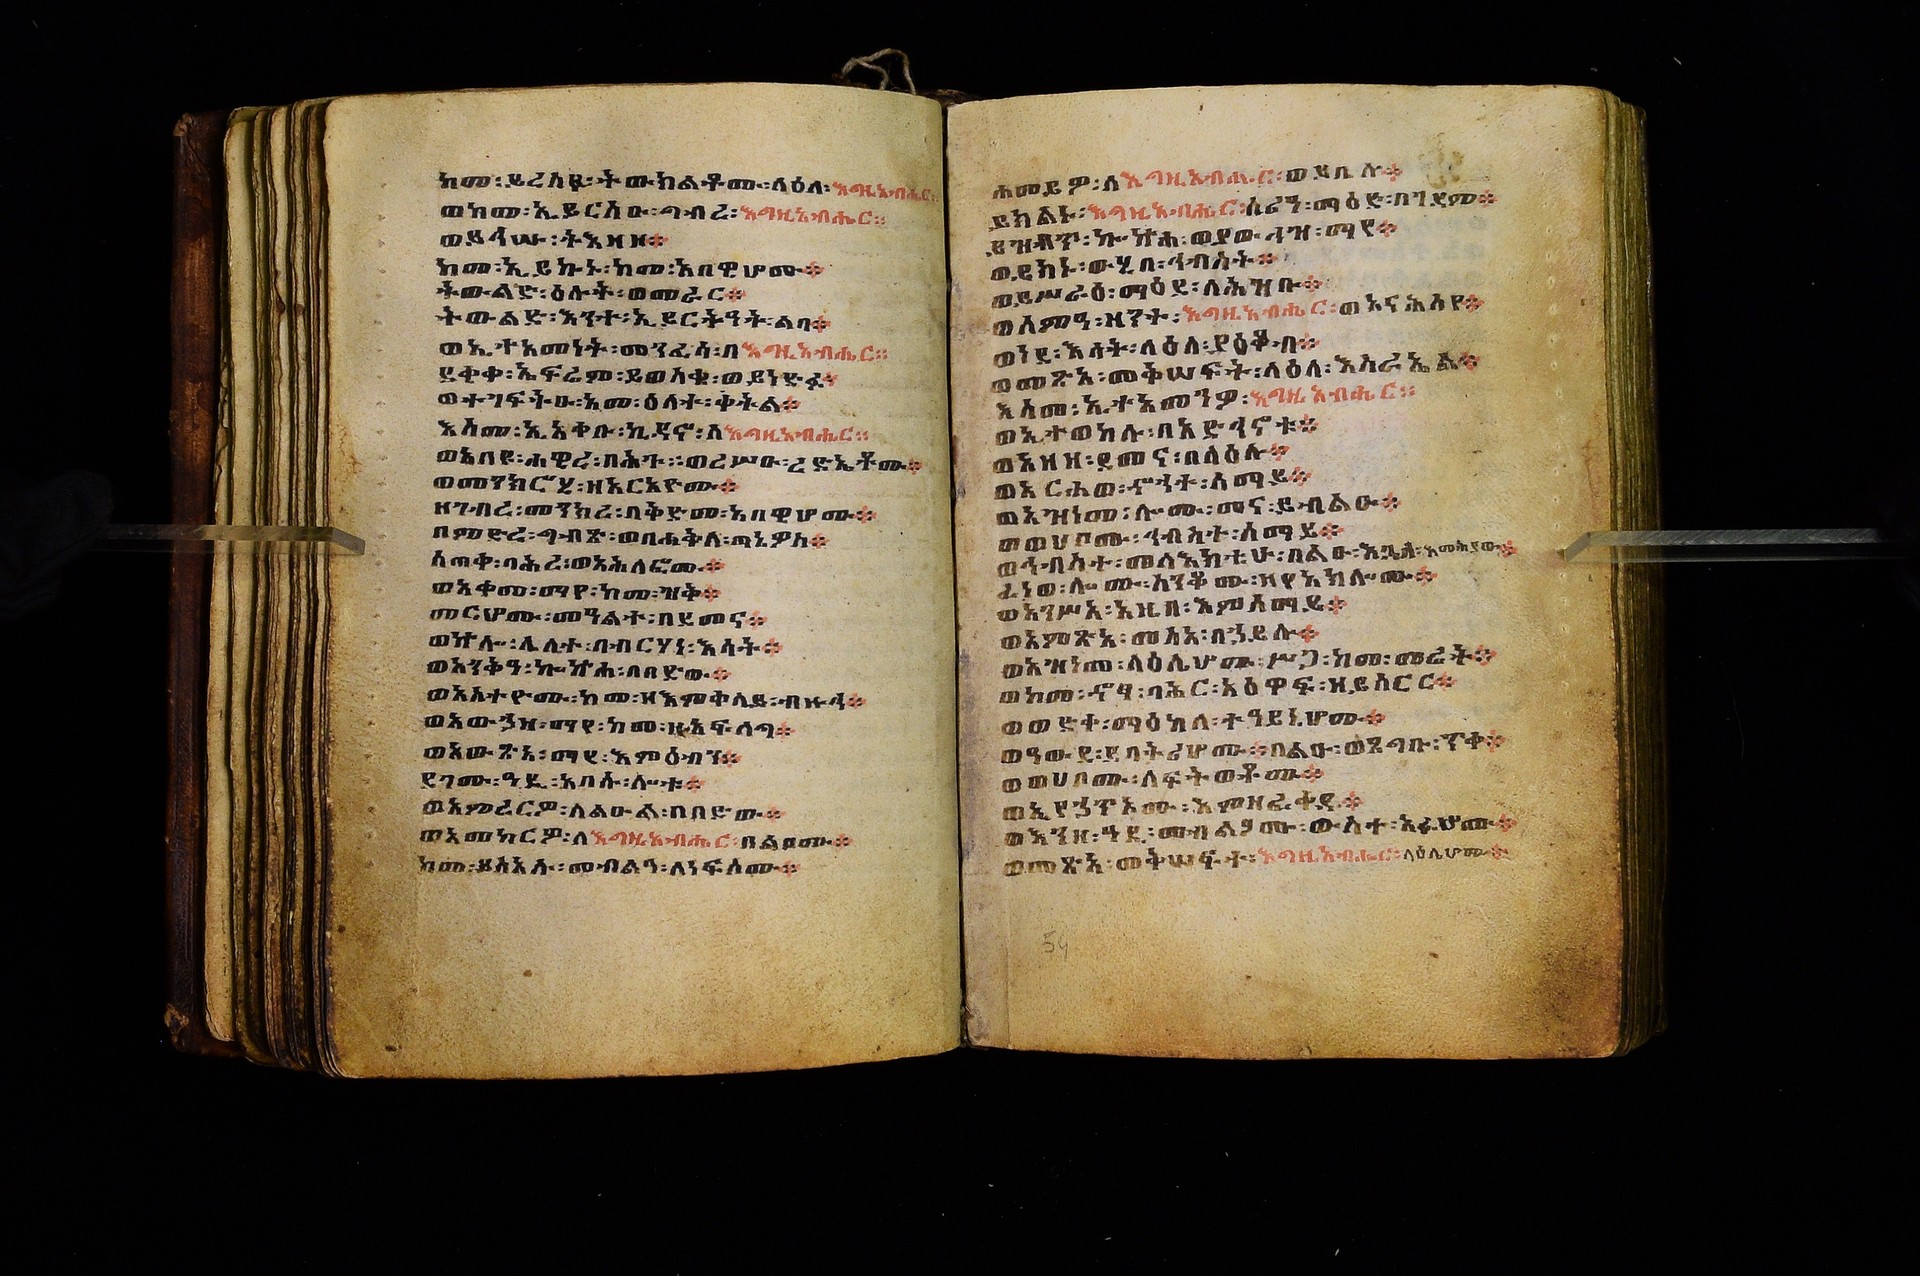 ከመ፡ይረስዩ፡ትውክልቶሙ፡ላዕለ፡እግዚአብሔር፡
ወከመ፡ኢይርስዑ፡ግብረ፡እግዚአብሔር።
ወይኅሡ፡ትእዛዘ፨
ከመ፡ኢይኩኑ፡ከመ፡አበዊሆሙ፨
ትውልድ፡ዕሉት፡ወመራር፨
ትውልድ፡እንተ፡ኢይርትዓት፡ልባ፨
ወኢተአመነት፡መንፈሳ፡በእግዚአብሔር።
ደቂቀ፡ኤፍሬም፡ይወስቁ፡ወይነድፉ፨
ወተገፍትዑ፡አመ፡ዕለተ፡ቀትል፨
እስመ፡ኢአቀቡ፡ኪዳኖ፡ለእግዚአብሔር።
ወአበዩ፡ሐዊረ፡በሕጉ።ወረሥዑ፡ረድኤቶሙ፨
ወመንክሮሂ፡ዘአርአዮሙ፨
ዘገብረ፡መንክረ፡በቅድመ፡አበዊሆሙ፨
በምድረ፡ግብጽ፡ወበሐቅለ፡ጣኔዎስ፨
ሰጠቀ፡ባሕረ፡ወአሕለፎሙ፨
ወአቀመ፡ማየ፡ከመ፡ዝቅ፨
መርሆሙ፡መዓልተ፡በደመና፨
ወኵሎ፡ሌሊተ፡በብርሃነ፡እሳት፨
ወአንቅዓ፡ኰኵሐ፡በበድው፨
ወአስተዮሙ፡ከመ፡ዘእምቀላይ፡ብዙኅ፨
ወአውኃዘ፡ማየ፡ከመ፡ዘአፍላግ፨
ወአውጽአ፡ማየ፡እምዕብን፨
ደገሙ፡ዓዲ፡አበሱ፡ሎቱ፨
ወአምረርዎ፡ለልዑል፡በበድው፨
ወአመከርዎ፡ለእግዚአብሔር፡በልቦሙ፨
ከመ፡ይስአሉ፡መብልዓ፡ለነፍሶሙ፨
ሐመይዎ፡ለእግዚአብሔር፡ወይቤሉ፨
ይክልኑ፡እግዚአብሔር፡ሠሪዓ፡ማዕድ፡በገዳም፨
ይዝብጥ፡ኰኵሐ፡ወያውኅዝ፡ማየ፨
ወይክኑ፡ውሂበ፡ኅብስት፨
ወይሥራዕ፡ማዕደ፡ለሕዝቡ፨
ወሰምዓ፡ዘንተ፡እግዚአብሔር፡ወአናሕሰየ፨
ወነደ፡እሳት፡ላዕለ፡ያዕቆብ፨
ወመጽአ፡መቅሠፍት፡ላዕለ፡እስራኤል፨
እስመ፡ኢተአመንዎ፡እግዚአብሔር።
ወኢተወከሉ፡በአድኅኖቱ፨
ወአዘዘ፡ደመና፡በላዕሉ፨
ወአርሐወ፡ኆኅተ፡ሰማይ፨
ወአዝነመ፡ሎሙ፡መና፡ይብልዑ፨
ወወሀቦሙ፡ኅብስተ፡ሰማይ፨
ወኅብስተ፡መላእክቲሁ፡በልዑ፡እጓለ፡እመሕያው፨
ፈነወ፡ሎሙ፡ስንቆሙ፡ዘየአክሎሙ፨
ወአንሥአ፡አዜበ፡እምሰማይ፨
ወአምጽአ፡መስአ፡በኃይሉ፨
ወአዝነመ፡ላዕሌሆሙ፡ሥጋ፡ከመ፡መሬት፨
ወከመ፡ኆፃ፡ባሕር፡አዕዋፍ፡ዘይሰርር፨
ወወድቀ፡ማዕከለ፡ተዓይኒሆሙ፨
ወዓውደ፡ደባትሪሆሙ፨በልዑ፡ወጸግቡ፡ጥቀ፨
ወወሀቦሙ፡ለፍትወቶሙ፨
ወኢየኃጥኦሙ፡እምዘፈቀዱ፨
ወእንዘ፡ዓዲ፡መብልዖሙ፡ውስተ፡አፉሆሙ፨
ወመጽአ፡መቅሠፍተ፡እግዚአብሔር፡ላዕሌሆሙ፨
54